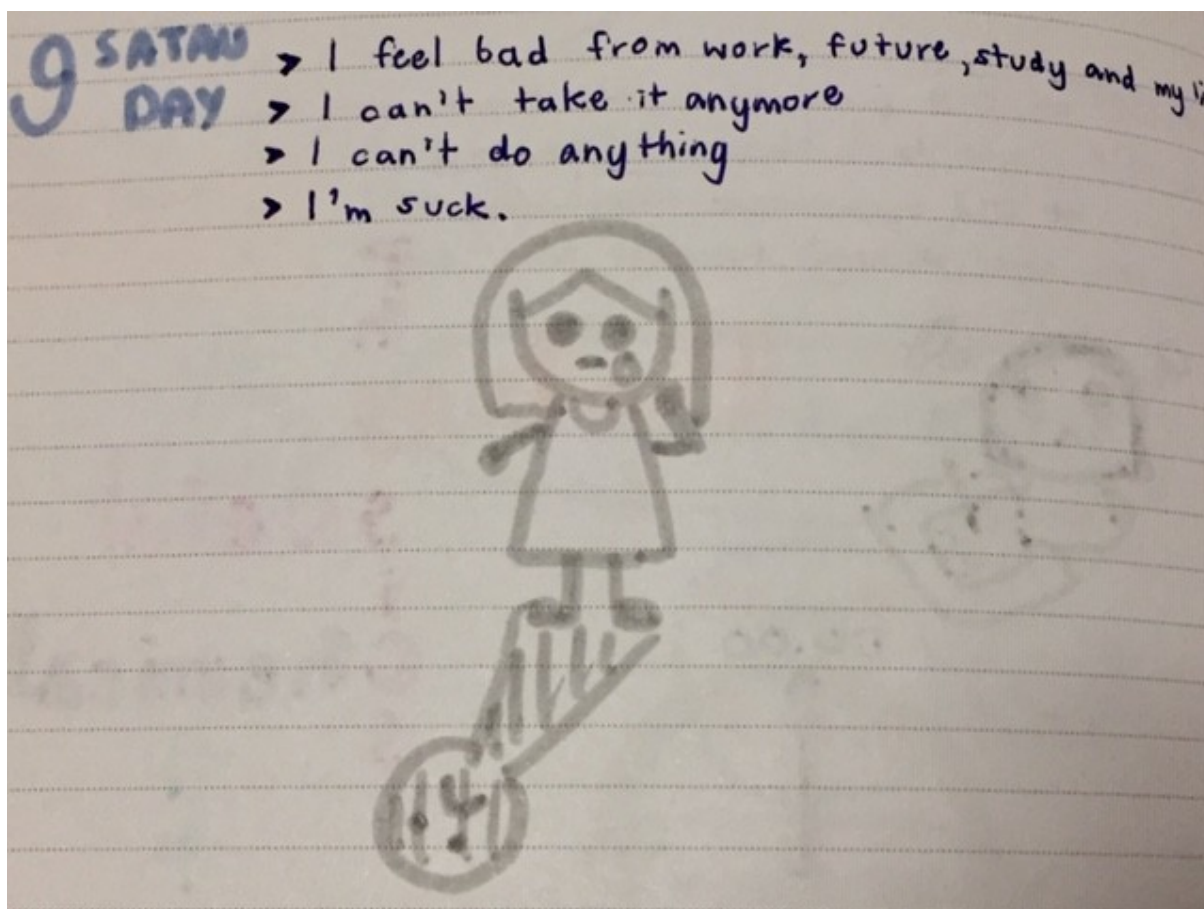 9 SATAU
DAY
> I feel bad from work, future, study and my
> I can't take it anymore
> I can't do anything
> I'm suck.